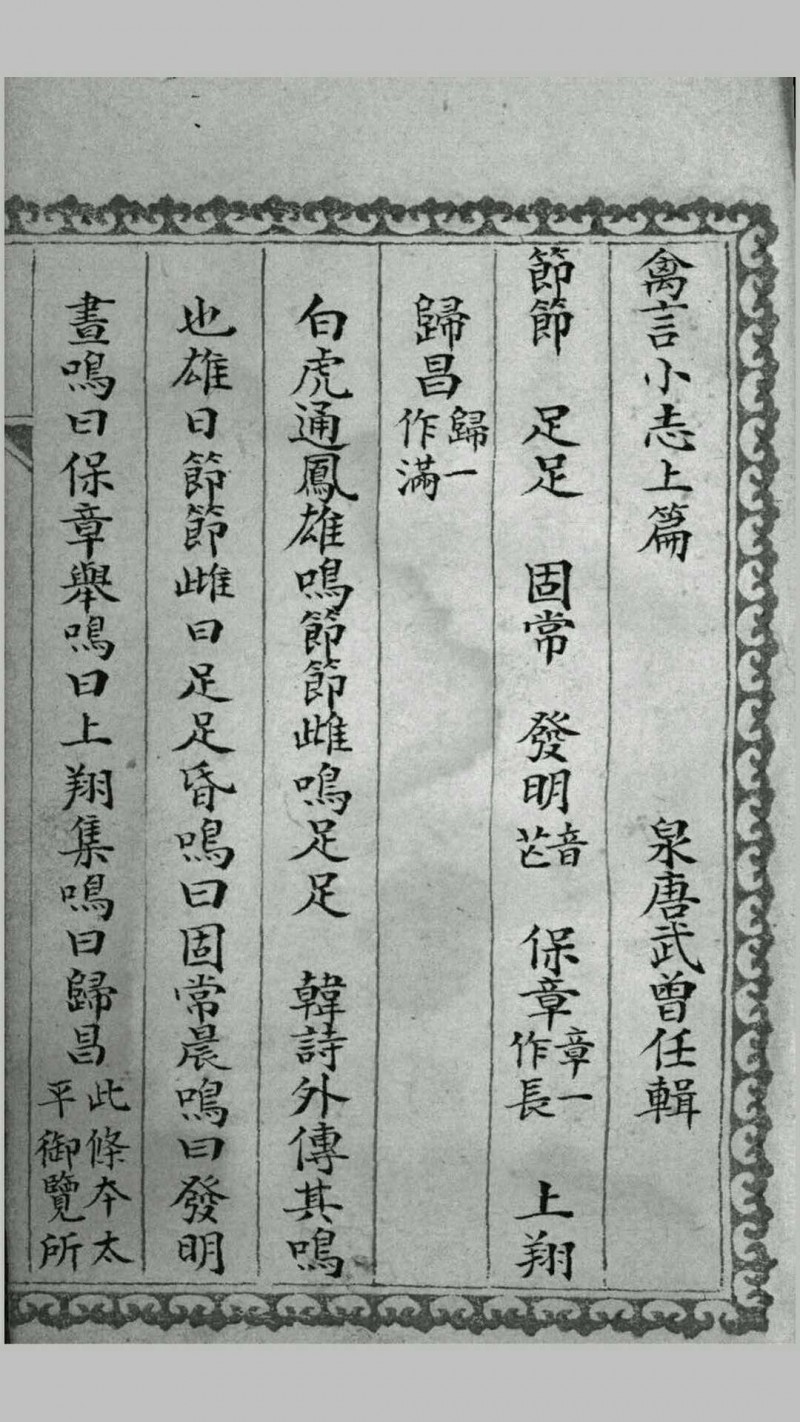 禽言小志上篇 泉唐武曾任輯
節節 足足 固常 發明音芒 保章章一作長 上翔
歸昌歸一作滿
白虎通鳳雄鳴節節雌鳴足足 韓詩外傳其鳴
也雄曰節節雌曰足足昏鳴曰固常晨鳴曰發明
晝鳴曰保章舉鳴曰上翔集鳴曰歸昌此條本太平御覽所